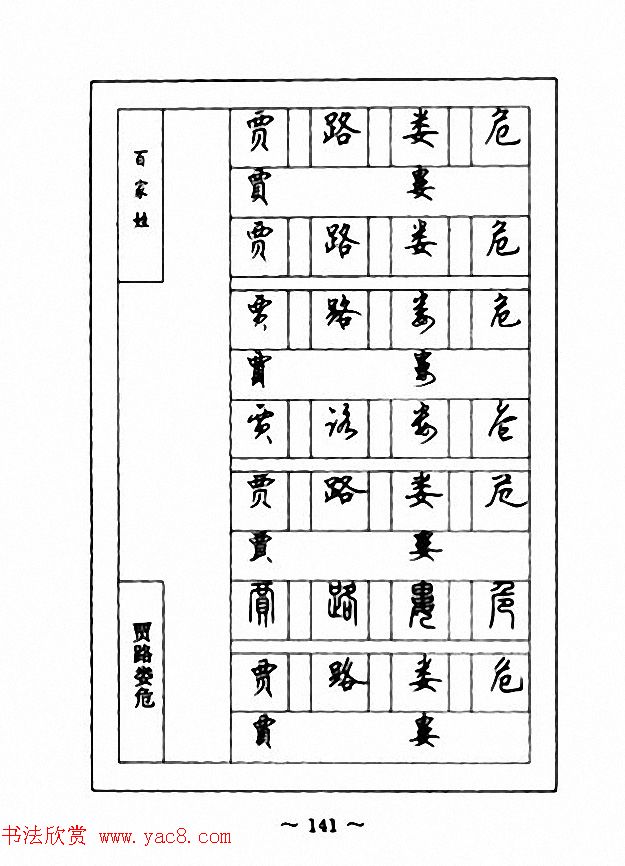 百家姓
贾路娄危
贾 路 娄 危
賈 婁
贾 路 娄 危
贾 路 娄 危
賈 婁
贾 路 娄 危
贾 路 娄 危
賈 婁
賈 路 婁 危
贾 路 娄 危
賈 婁
～ 141 ～
书法欣赏 www.yac8.com